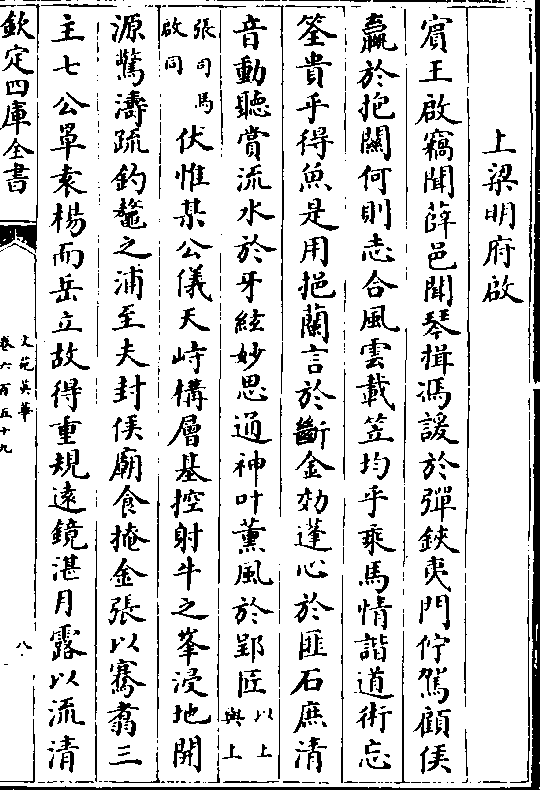 上梁明府啟
賓王啟竊聞薛邑聞琴揖馮諼於彈鋏夷門佇駕顧侯
嬴於抱關何則志合風雲載笠均乎乘馬情諧道術忘
筌貴乎得魚是用挹蘭言於斷金効蓬心於匪石庶清
音動聽賞流水於牙絃妙思通神叶薰風於郢匠以上與上
張司馬啟同伏惟某公儀天峙構層基控射牛之峯浸地開
源驚濤疏釣鼇之浦至夫封侯廟食掩金張以騫翥三
主七公單袁楊而岳立故得重規遠鏡湛月露以流清
欽定四庫全書
文苑英華
卷六百五十九
八